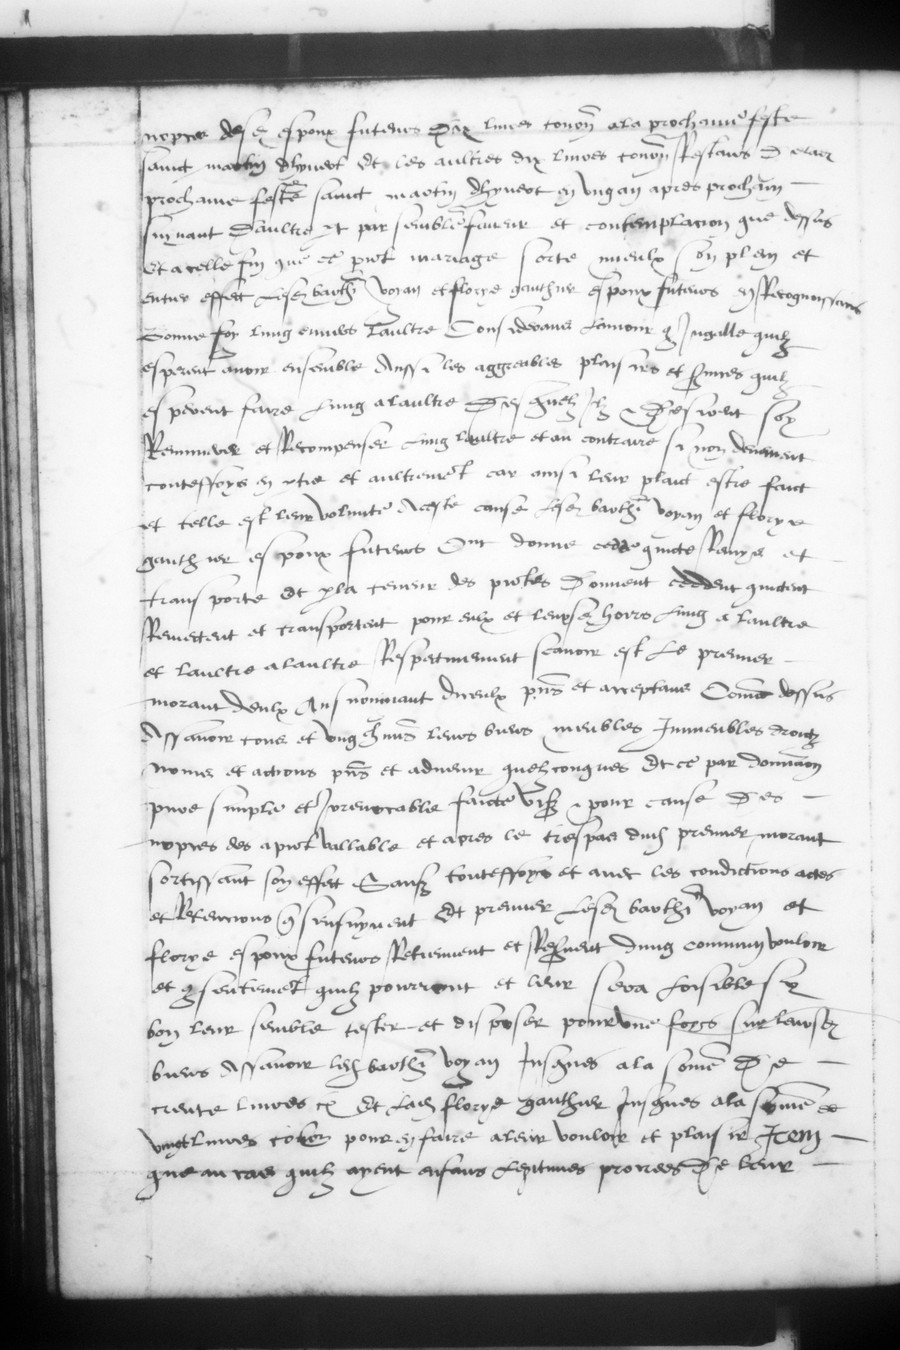 nopces desd espoux futeurs dix livres tournois a la prochaine feste
sainct martin dhyvert Et les aultres dix livres tournois Restans daultre
prochaine feste sainct martin dhyvert en ung an apres prochain
suyvant Daultre pt par semblable faveur et contemplacion que dessus
Et a celle fin que ce pnt mariage sorte mieulx son plain et
entier effect Lesd barthe voyan et florye gauthier espoux futeurs en Recognoissans
bonne foy lung envers laultre Considerans Lamour conjugalle quilz
esperent avoir ensemble Aussi les aggreables plaisirs et services quilz
esperent faire Lung a laultre Desquelz Ilz Desirent soy
Remunerer et Recompenser Lung laultre et au contraire si non deuement
touteffoys en ptie et aultrement car ainsi leur plaict estre faict
et telle est leur volunte A ceste cause Lesd barthe voyan et florye
gauthier espoux futeurs Ont donne cedde quicte Remys et
transporte Et p la teneur des pntes Donnent ceddent quictent
Remectent et transportent pour eulx et leurs hoirs Lung a laultre
et laultre a laultre Respectivement scavoir est Le premier
morant deulx Au survivant diceulx pns et acceptans Comme dessus
Assavoir tous et ungchuns leurs biens meubles Immeubles droictz
noms et actions pns et advenir quelzconques Et ce par donnaon
pure simple et Irrevocable faicte pour cause Des
nopces des a pnt vallable et apres le trespas dud premier morant
sortissant son effect Saufz touteffoys et avec les condictions actes
et Retencions que sensuyvent Et premier Lesd barthe voyan et
florye espoux futeurs Retiennent et Reservent dung commun vouloir
et consentement quilz pourront et leur sera Loisible sy
bon leur semble tester et disposer pour une foys sur leursd
biens Assavoir led barthe voyan Jusques a la somme De
trente livres tz Et Lad florye gauthier Jusques a la somme de
vingt livres tourn pour en faire a leur vouloir et plaisir Item
que au cas quilz ayent enfans Legitimes procrees De leur